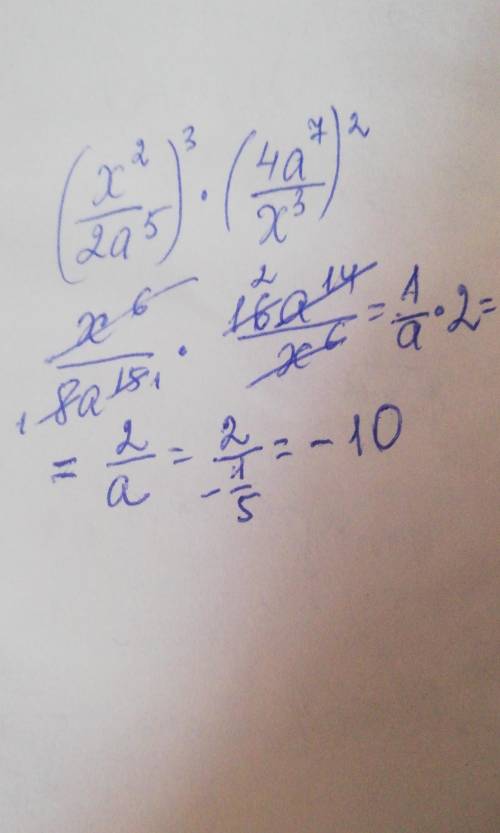 (x²/2a⁵)³ · (4a⁷/x³)²
x⁶/8a¹⁵ · 16a¹⁴/x⁶ = 1/a · 2 =
= 2/a = 2/-1/5 = -10